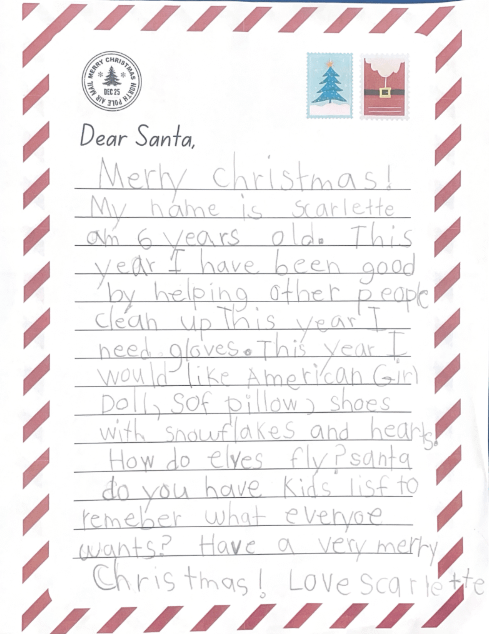 MERRY CHRISTMAS
DEC 25
NORTH POLE AIR MAIL
Dear Santa,
Merry christmas!
My name is scarlette
am 6 years old. This
year I have been good
by helping other people
clean up This year I
need gloves. This year I
would like American Girl
Doll, Sof pillow, shoes
with snowflakes and hearts.
How do elves fly? santa
do you have Kids list to
remeber what everyoe
wants? Have a very merry
Christmas! Love scarlette